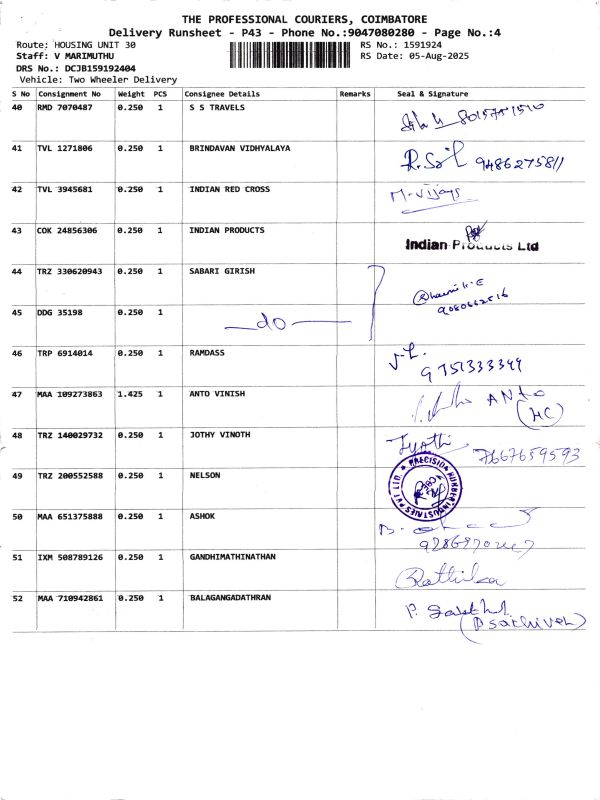 THE PROFESSIONAL COURIERS, COIMBATORE
Delivery Runsheet - P43 - Phone No.:9047080280 - Page No.:4
Route: HOUSING UNIT 30
RS No.: 1591924
Staff: V MARIMUTHU
RS Date: 05-Aug-2025
DRS No.: DCJB159192404
Vehicle: Two Wheeler Delivery
S No Consignment No Weight PCS Consignee Details Remarks Seal & Signature
40 RMD 7070487 0.250 1 S S TRAVELS
41 TVL 1271806 0.250 1 BRINDAVAN VIDHYALAYA 9486275811
42 TVL 3945681 0.250 1 INDIAN RED CROSS M. Vijaya
43 COK 24856306 0.250 1 INDIAN PRODUCTS Indian Products Ltd
44 TRZ 330620943 0.250 1 SABARI GIRISH
45 DDG 35198 0.250 1 do
46 TRP 6914014 0.250 1 RAMDASS 9751333349
47 MAA 109273863 1.425 1 ANTO VINISH ANTO
(HC)
48 TRZ 140029732 0.250 1 JOTHY VINOTH Jyothi 7667659593
49 TRZ 200552588 0.250 1 NELSON PRECISION RUBBER INDUSTRIES PVT LTD.
50 MAA 651375888 0.250 1 ASHOK
51 IXM 508789126 0.250 1 GANDHIMATHINATHAN Rathika
52 MAA 710942861 0.250 1 BALAGANGADATHRAN
(P Sakthivel)